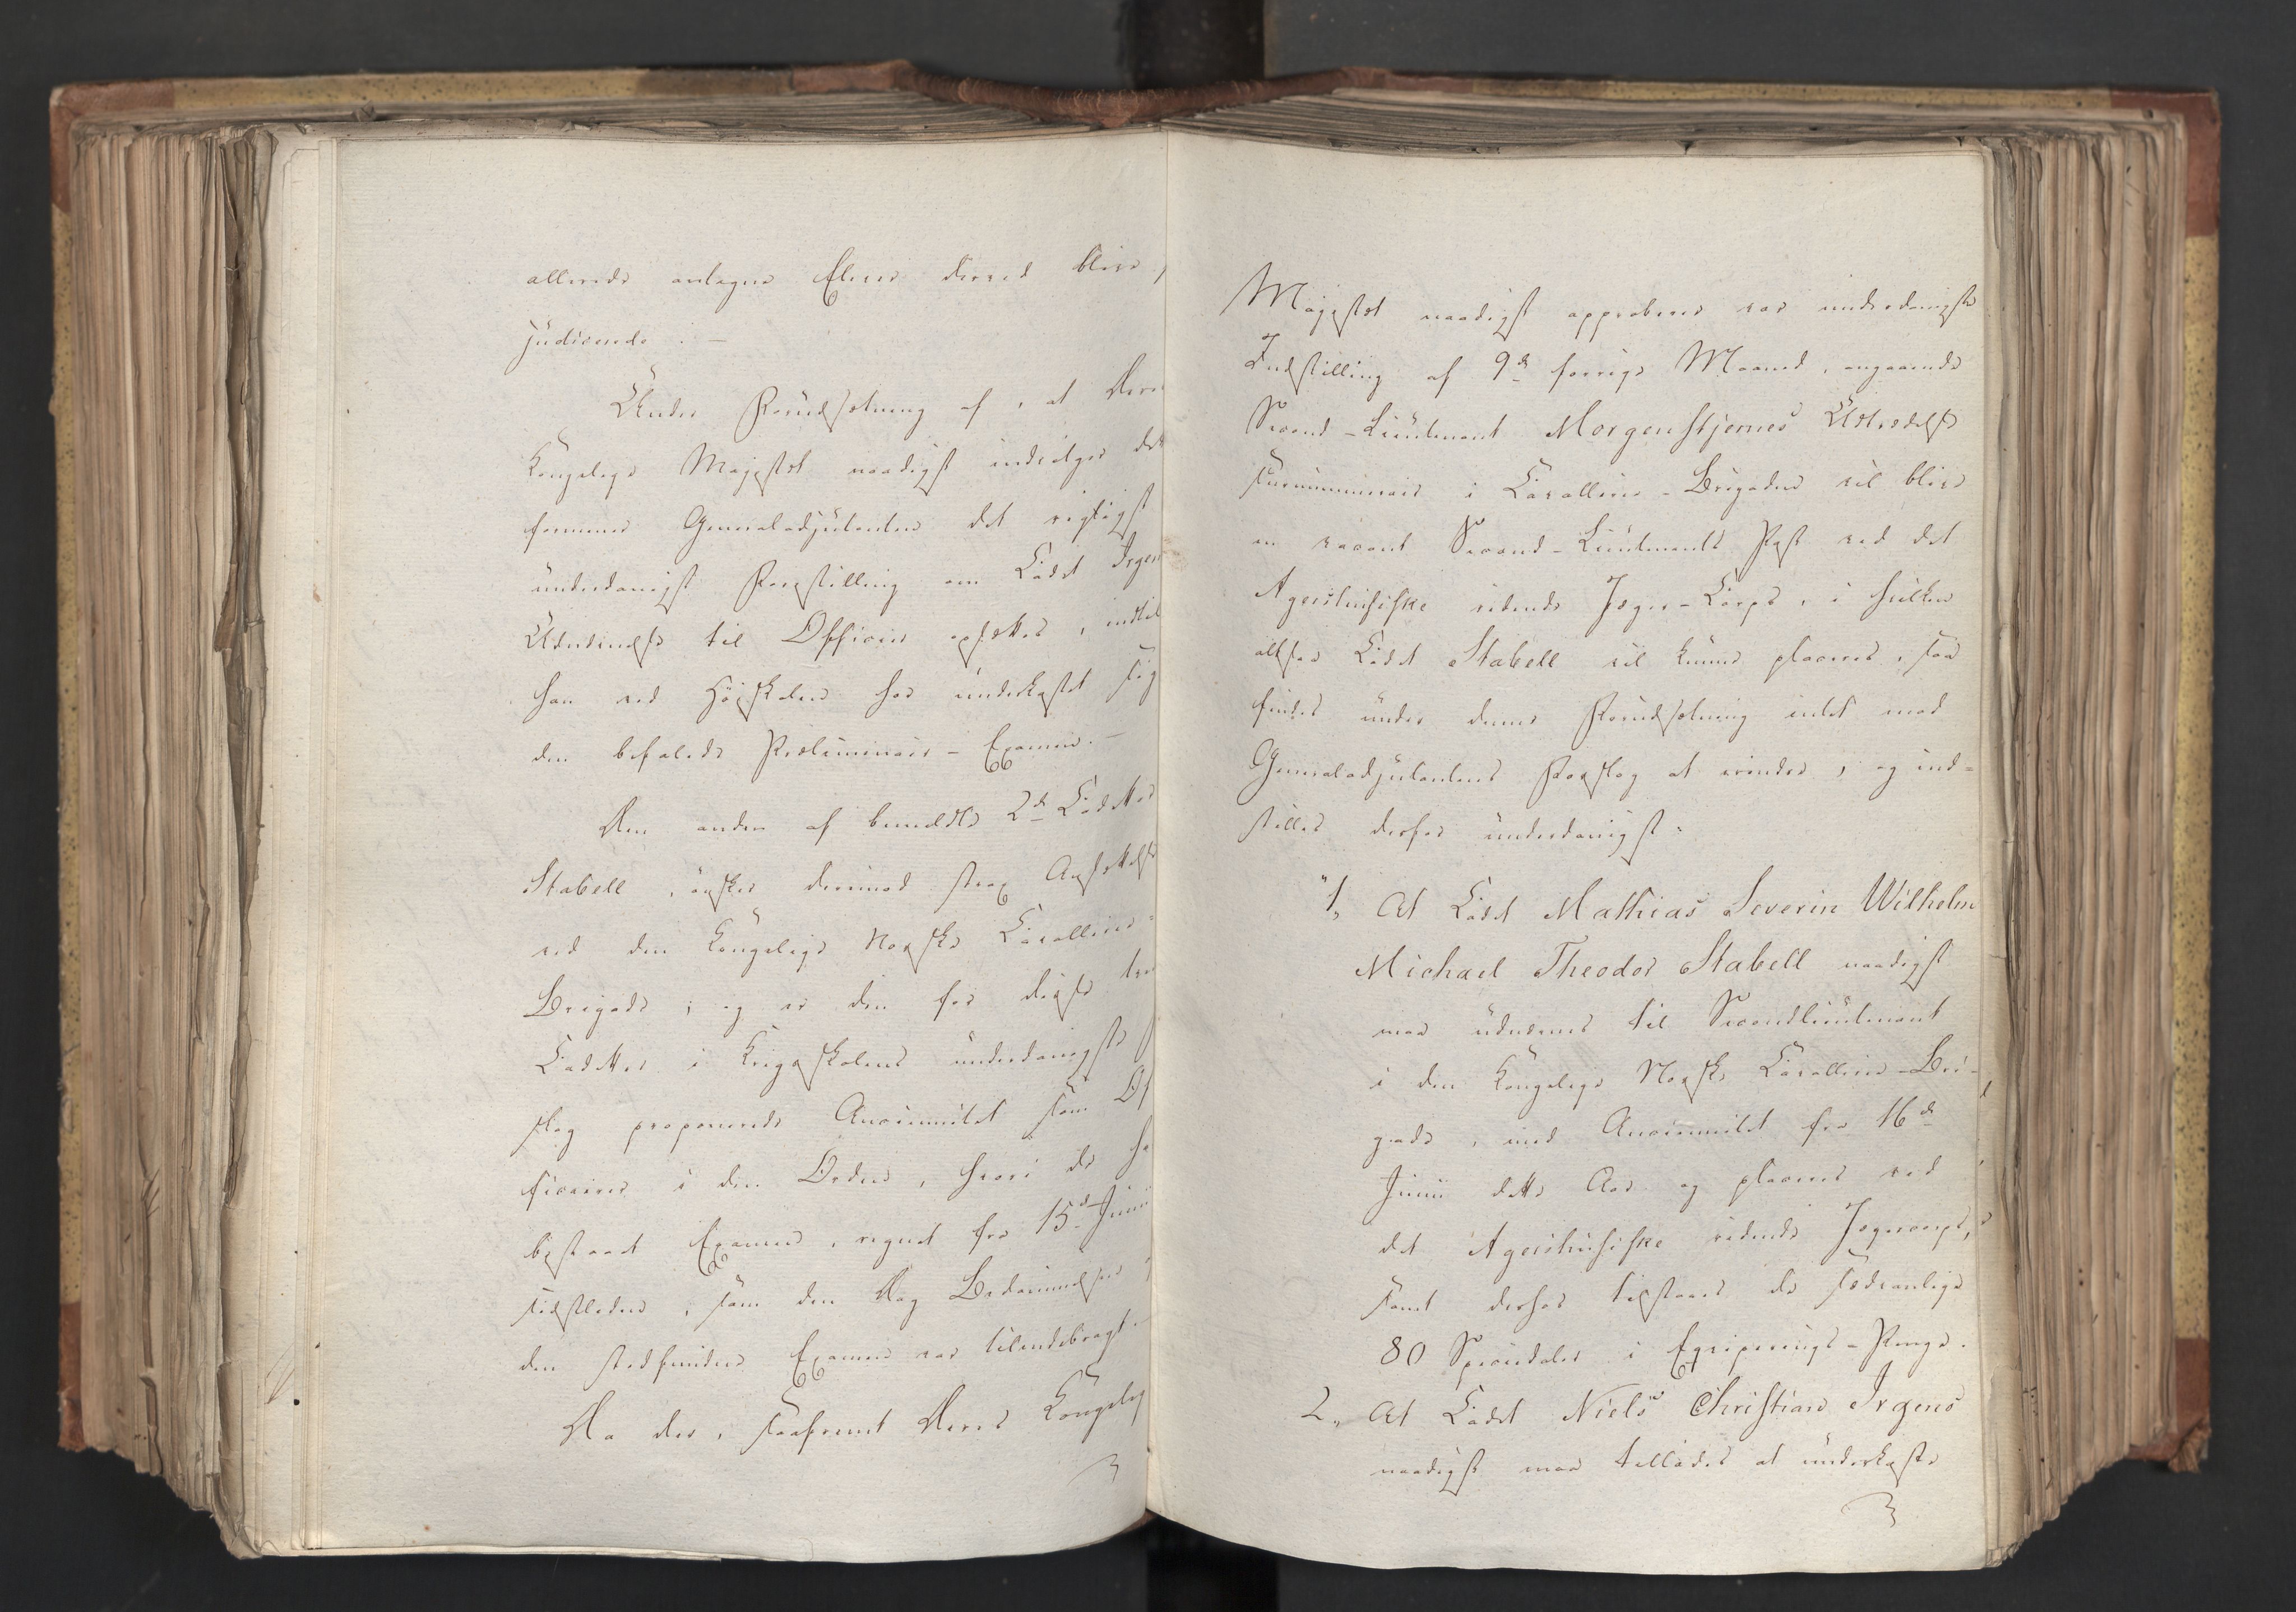 allerede antagne Elever derved blive
judicerede. —
Under Forudsætning af, at Deres
Kongelige Majestæt naadigst indvilger det
formener Generaladjutanten det rigtigst
underdanigst Forestilling om Cadet Irgens
Udnævnelse til Officier opsættes, indtil
han ved Høiskolen har underkastet sig
den befalede Præliminair-Examen. —
Den anden af bemeldte 2de Cadetter
Stabell, ønsker derimod strax Ansættelse
ved den Kongelige Norske Cavallerie-
Brigade; og er den for disse tvende
Cadetter i Krigsskolens underdanigste
slag proponerede Anciennitet som Of
ficierer i den Orden, hvori de ha
bestaaet Examen, regnet fra 15de Junii
sidstleden, som den Dag Bedømmelsen
den stedfundne Examen var tilendebragt. —
Da der, saafremt Deres Kongelig
Majestæt naadigst approberer vor underdanigste
Indstilling af 9de forrige Maaned, angaaende
Second-Lieutenant Morgenstjernes Udtrædelse
i Cavallerie-Brigaden vil blive
en vacant Second-Lieutenants Post ved det
Agershusiske ridende Jæger-Corps, i hvilken
altsaa Cadet Stabell vil kunne placeres, saa
findes under denne Forudsætning intet mod
Generaladjutantens Forslag at erindre, og ind-
stilles derfor underdanigst:
"1, At Cadet Mathias Severin Wilhelm
Michael Theodor Stabell naadigst
maa udnævnes til Secondlieutenant
i den Kongelige Norske Cavallerie-Bri-
gade, med Anciennitet fra 16de
Junii dette Aar og placeres ved
det Agershusiske ridende Jægercorps,
samt derhos tilstaaes de sædvanlige
80 Speciedaler i Eqviperings-Penge.
2, At Cadet Niels Christian Irgens
naadigst maa tillades at underkaste